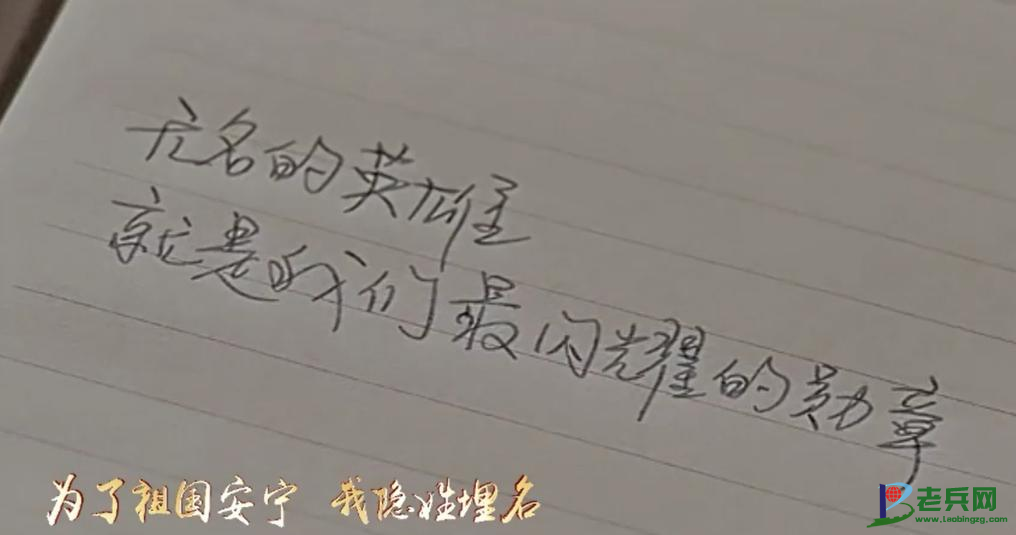 无名的英雄
就是我们最闪耀的勋章
为了祖国安宁 我隐姓埋名
老兵网
www.Laobingzg.com